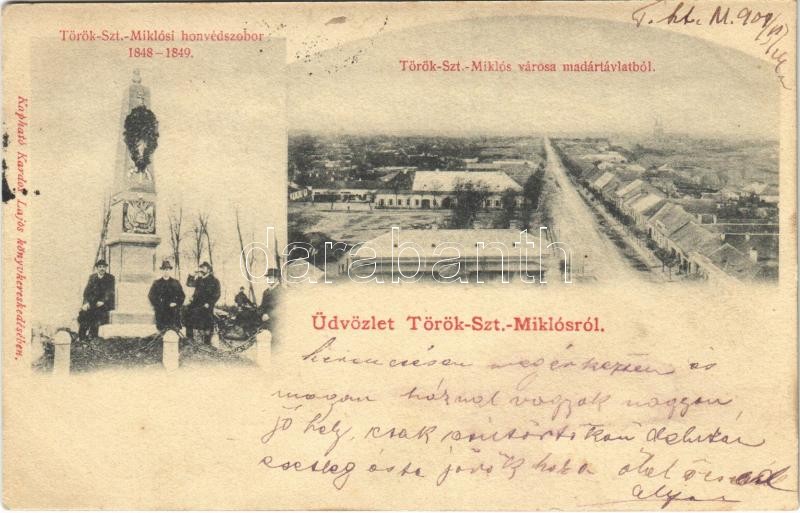 T. szt. M. 900
Török-Szt.-Miklósi honvédszobor
1848–1849.
Török-Szt.-Miklós városa madártávlatból.
Kapható Kardos Lajos könyvkereskedésében.
darabanth
Üdvözlet Török-Szt.-Miklósról.
szerencsésen megérkeztem és
magam háznál vagyok nagyon
jó hely, csak csütörtökön délután
esetleg este jövök haza ölel